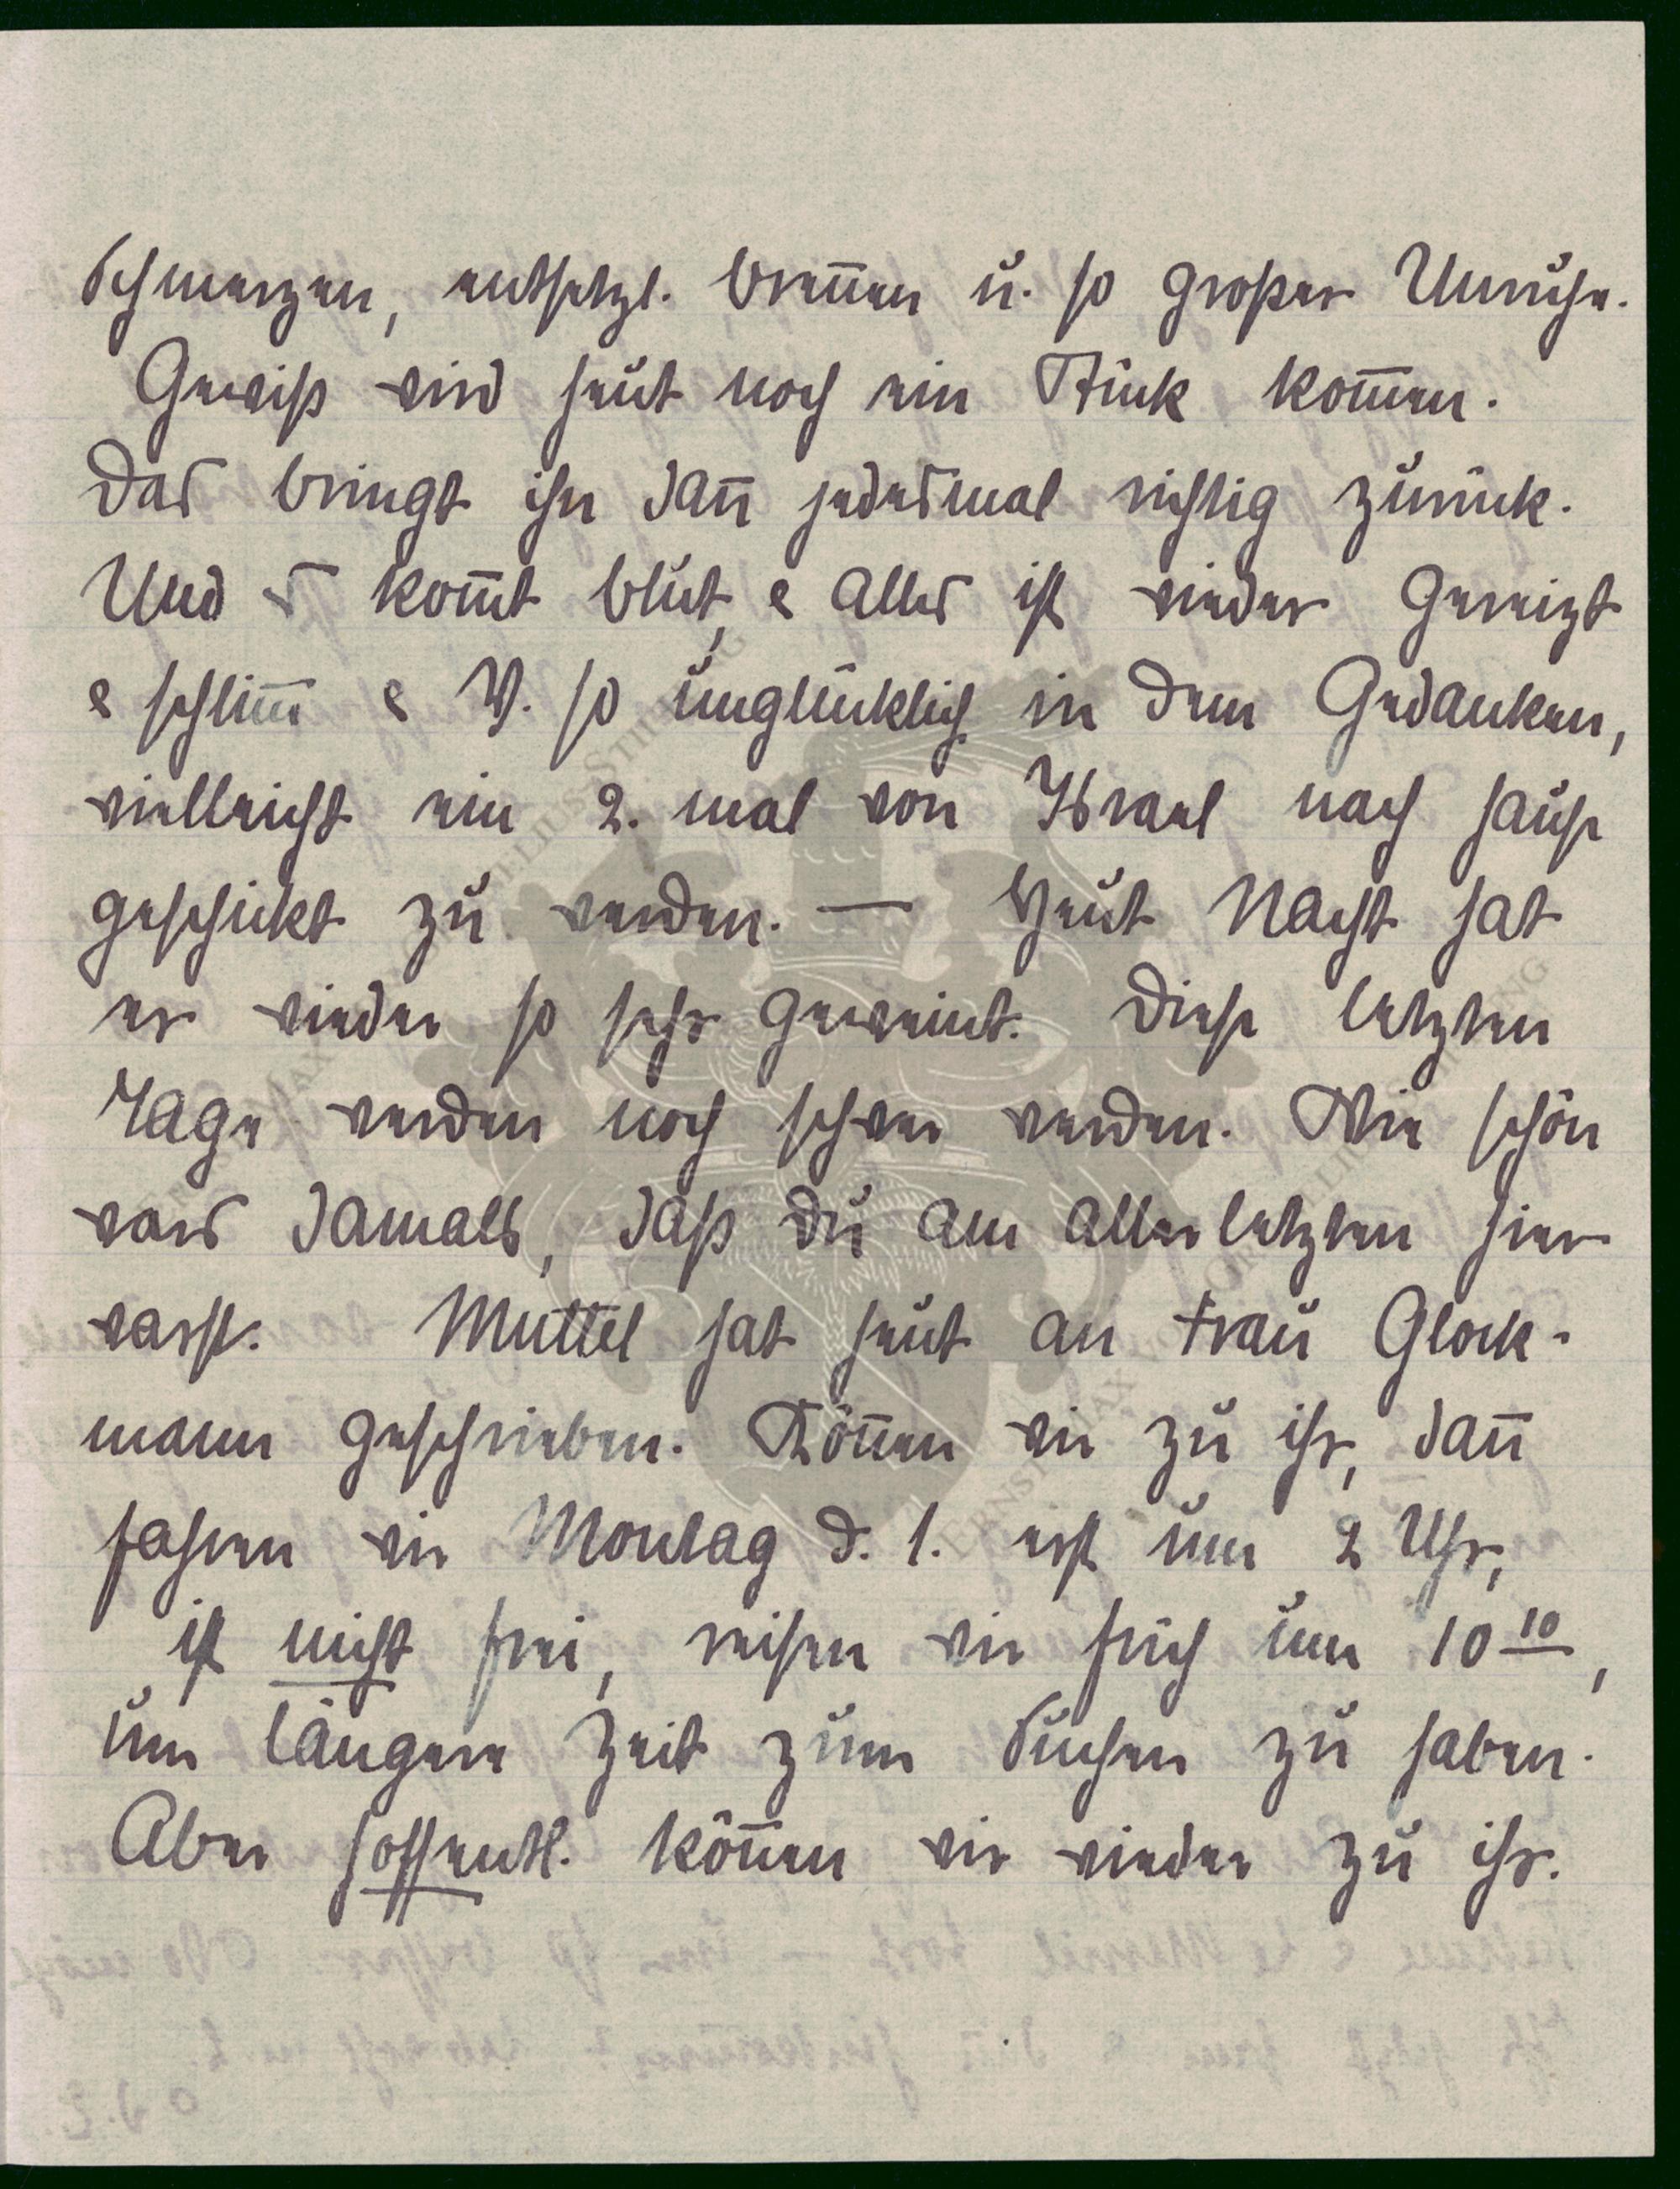 Schmerzen, entsetzl. breñen u. so großer Unruhe.
Gewiß wird heut noch ein Stück kom̄en.
Das bringt ihn dañ jedesmal richtig zurück.
Und s kom̄t Blut, & alles ist wieder gereizt
& schlim̄ & V. so unglücklich in dem Gedanken,
vielleicht ein 2. mal von Israel nach hause
geschickt zu werden. — Heut Nacht hat
er wieder so sehr geweint. Diese letzten
Tage werden noch schwer werden. Wie schön
wars damals, daß du am allerletzten hier
warst. Muttel hat heut an Frau Glock-
mann geschrieben. Köñen wir zu ihr, dañ
fahren wir Montag d. 1. erst um 2 Uhr,
ist nicht frei, reisen wir früh um 10 10,
um längere Zeit zum Suchen zu haben.
Aber hoffentl. köñen wir wieder zu ihr.